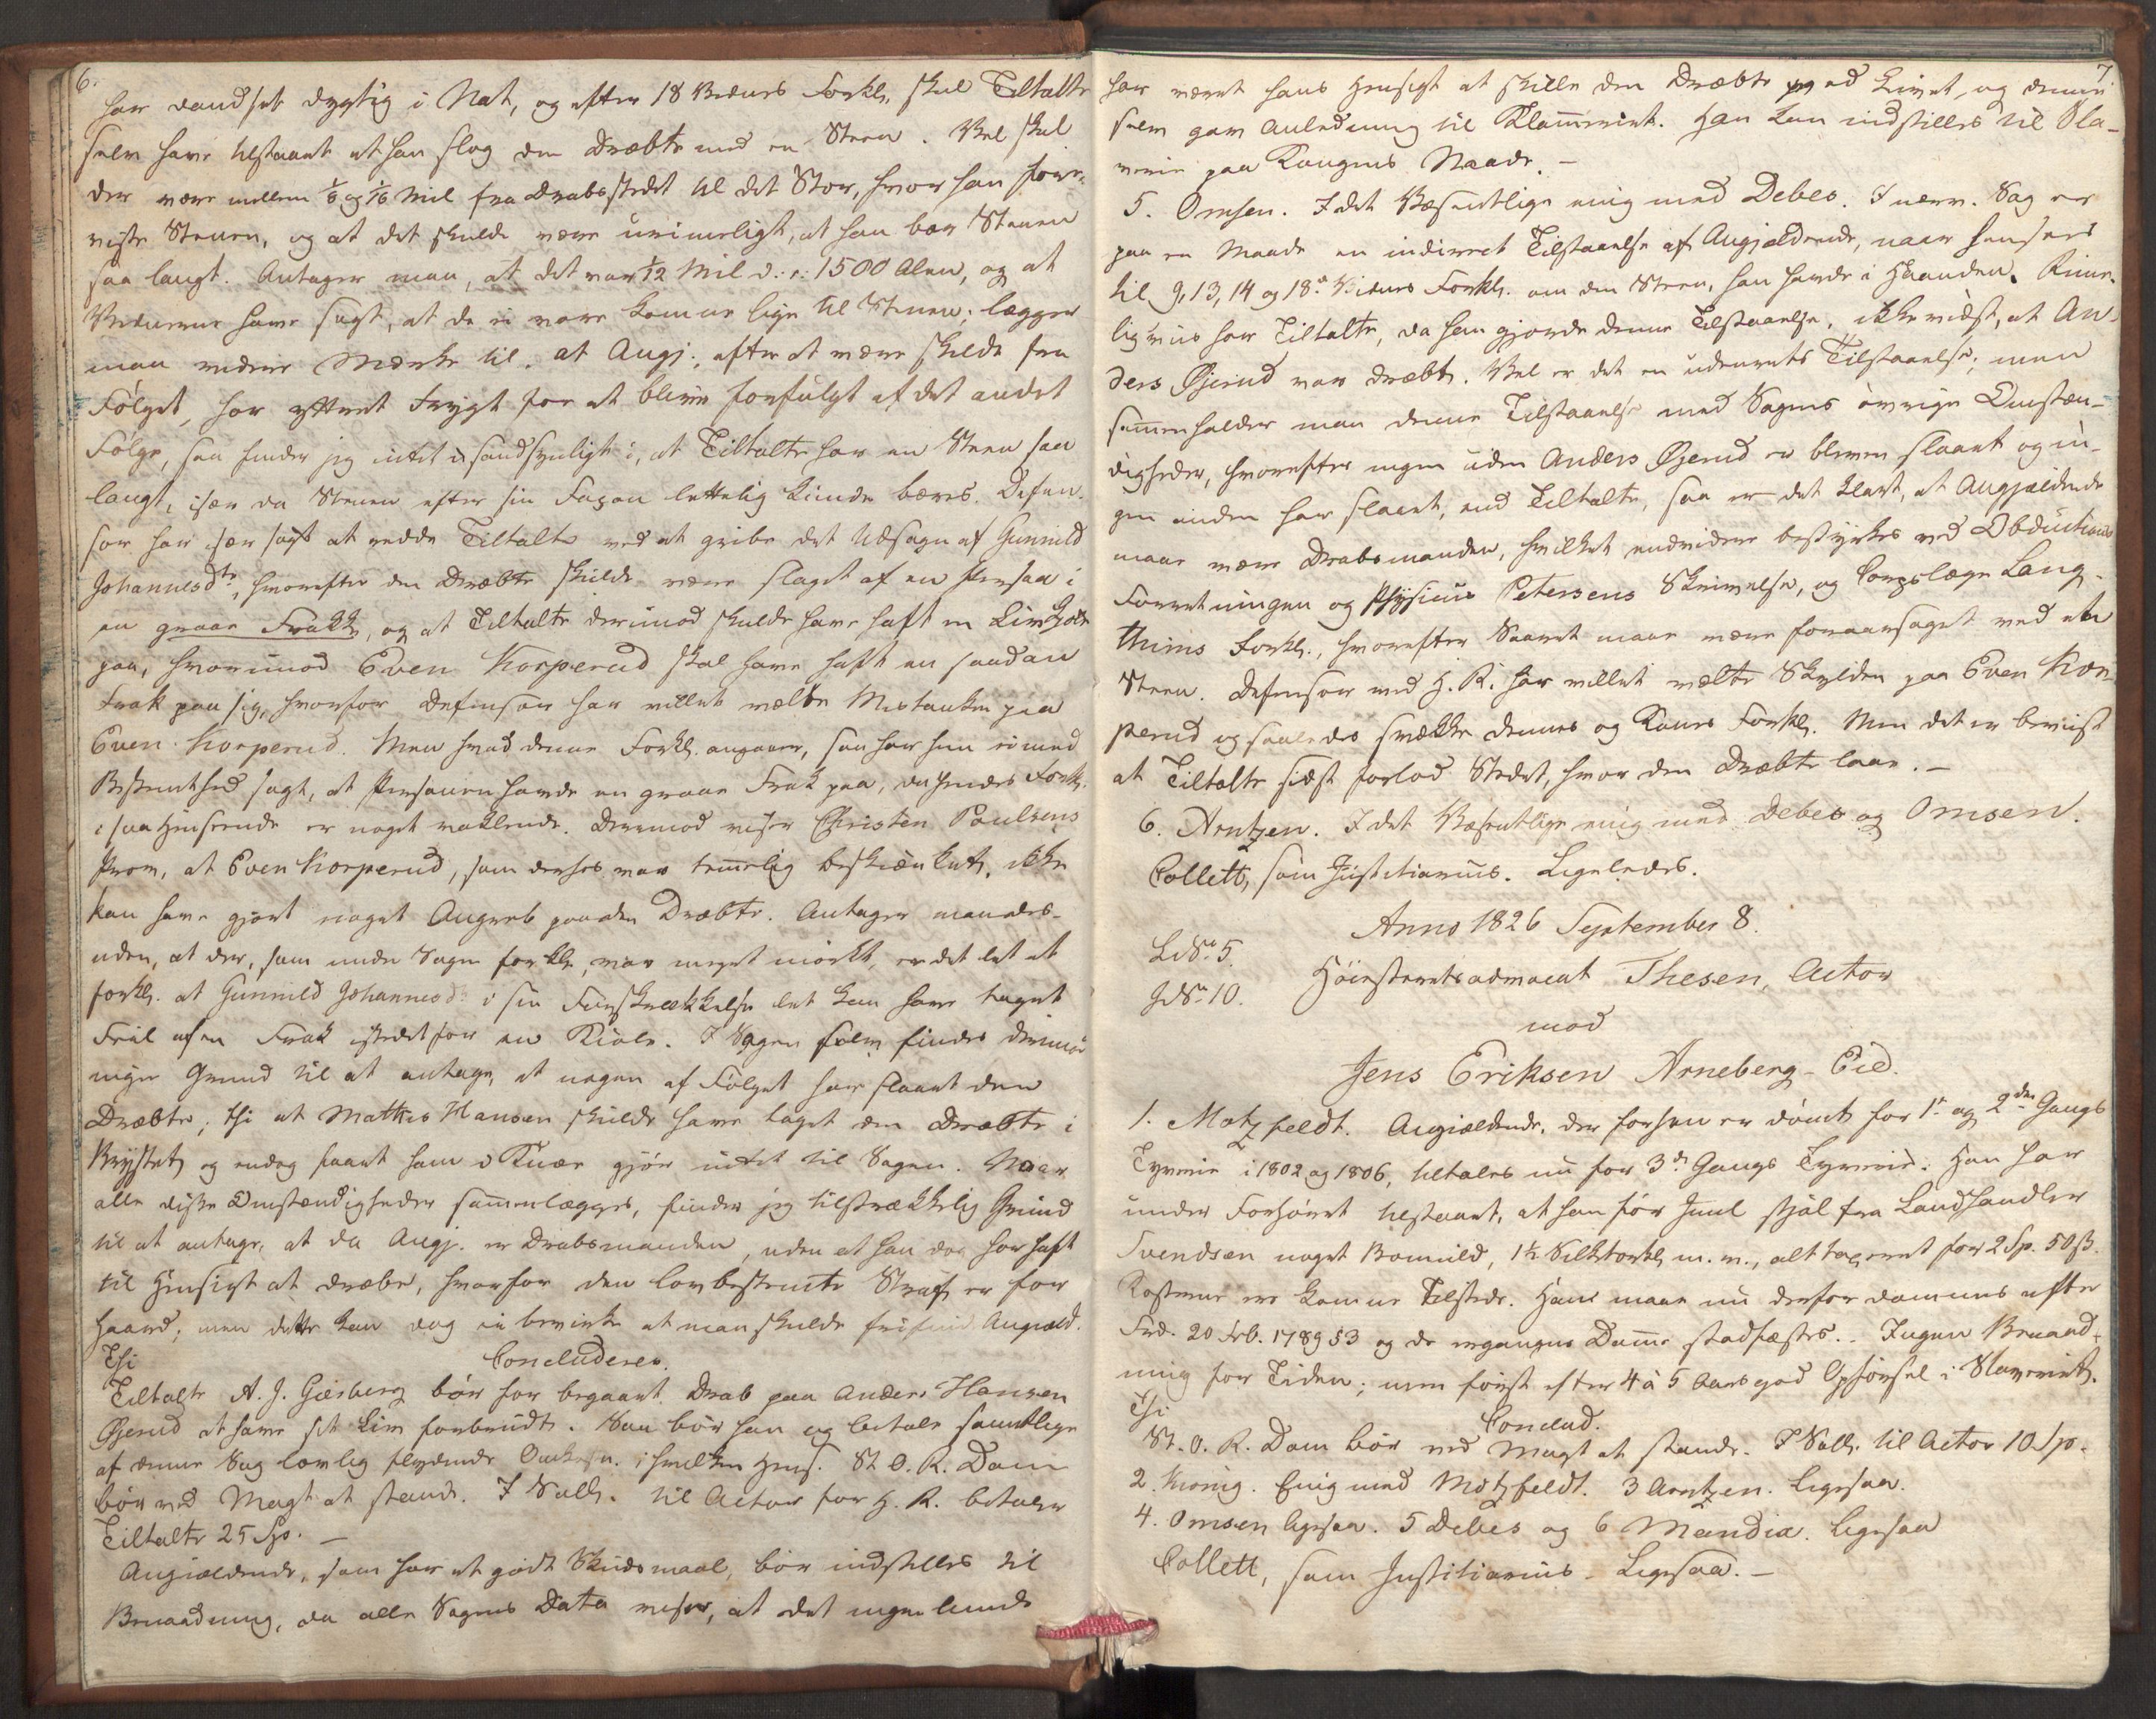 6.
har vandset dygtig i Nat, og efter 18 Vidners Forkl. skal Tiltalte
selv have tilstaaet at han slog den Dræbte med en Steen. Vel skal
der være mellem 1/8 og 1/16 Mil fra Drabsstedet til det Sted, hvor han fore-
viste Stenen, og at det skulde være urimeligt, at han bar Stenen
saa langt. Antager man, at det var 1/12 Mil d: e: 1500 Alen, og at
Vidnerne have sagt, at de ei vare komne lige til Stenen; lægger
man videre Mærke til, at Angj. efter at være skildt fra
Følget, har yttret Frygt for at blive forfulgt af det andet
Følge, saa finder jeg intet usandsynligt i, at Tiltalte har en Steen saa
langt, især da Stenen efter sin Façon lettelig kunde bæres. Defen-
sor har især søgt at redde Tiltalte ved at gribe det Udsagn af Gunnild
Johannesdtr., hvorefter den Dræbte skulde være slaget af en Person i
en graae Frakke, og at Tiltalte derimod skulde have haft en Livkjole
paa, hvorimod Even Korperud skal have haft en saadan
Frak paa sig, hvorfor Defensor har villet vælte Mistanken paa
Even Korperud. Men hvad denne Forkl. angaaer, saa har hun ei med
Bestemthed sagt, at Personen havde en graae Frak paa, da hendes Forkl.
i saa Henseende er noget vaklende. Derimod viser Christen Poulsens
Prov, at Even Korperud, som derhos var temmelig beskiænket, ikke
kan have gjort noget Angreb paa den Dræbte. Antager man des-
uden, at der, som under Sagen forklt, var meget mørkt, er det let at
forkl. at Gunnild Johannesd. i sin Forskrækkelse let kan have taget
Feil af en Frak istedetfor en Kiole. I Sagen selv findes derimod
ingen Grund til at antage, at nogen af Følget har slaaet den
Dræbte; thi at Mathis Hansen skulde have taget den Dræbte i
Brystet, og endog faaet ham i Knæe gjør intet til Sagen. Naar
alle disse Omstændigheder sammenlægges, finder jeg tilstrækkelig Grund
til at antage, at da Angj. er Drabsmanden, uden at han dog har haft
til Hensigt at dræbe, hvorfor den lovbestemte Straf er for
haard; men dette kan dog ei bevirke at man skulde frifinde Angjæld.
Thi
Concluderes.
Tiltalte A. J. Giesberg bør for begaaet Drab paa Anders Hansen
Øjerud at have sit Liv forbrudt. Saa bør han og betale samtlige
af denne Sag lovlig flydende Omkostn. i hvilken Hens. St. O. R. Dom
bør ved Magt at stande. I Sall. til Actor for H. R. betaler
Tiltalte 25 Sp. —
Angiældende, som har et godt Skudsmaal, bør indstilles til
Benaadning, da alle Sagens Data viser, at det ingenlunde
7.
har været hans Hensigt at skille den Dræbte ved Livet, og denne
selv gav Anledning til Klammeriet. Han kan indstilles til Sla-
verie paa Kongens Naade. —
5. Omsen. I det Væsentlige enig med Debes. I nærv. Sag er
paa en Maade en indirect Tilstaaelse af Angjældende, naar hensees
til 9, 13, 14 og 18de Vidnes Forkl. om den Steen, han havde i Haanden. Rime-
ligviis har Tiltalte, da han gjorde denne Tilstaaelse, ikke vidst, at An-
ders Øjerud var dræbt. Vel er det en udenrets Tilstaaelse; men
sammenholder man denne Tilstaaelse med Sagens øvrige Omstæn-
digheder, hvorefter ingen uden Anders Øjerud er bleven slaaet og in-
gen anden har slaaet, end Tiltalte, saa er det klart, at Angjældende
maae være Drabsmanden, hvilket endvidere bestyrkes ved Obductions
Forretningen og Physicus Petersens Skrivelse, og Corpslæge Lang-
thims Forkl., hvorefter Saaret maae være foraarsaget ved en
Steen. Defensor ved H. R. har villet vælte Skylden paa Even Kor-
perud og saaledes svække dennes og Kones Forkl. Men det er beviist
at Tiltalte sidst forlod Stedet, hvor den Dræbte laae. —
6. Arntzen. I det Væsentlige enig med Debes og Omsen.
Collett, som Justitiarius. Ligeledes.
Anno 1826 September 8.
L. No. 5.
J. No. 10.
Høiesteretsadvocat Thesen, Actor
mod
Jens Eriksen Arneberg-Eid.
1. Motzfeldt. Angiældende, der forhen er dømt for 1ste og 2den Gangs
Tyverie i 1802 og 1806, tiltales nu for 3de Gangs Tyverie. Han har
under Forhøret tilstaaet, at han før Juul stjal fra Landhandler
Svendsen noget Bomuld, 1 1/2 Silketørkl. m. v., alt taxeret for 2 Sp. 50 ß.
Kosterne ere komne tilstede. Han maae nu derfor dømmes efter
Frd. 20 Feb. 1789 § 3 og de ergangne Domme stadfæstes. Ingen Benaad-
ning for Tiden; men først efter 4 à 5 Aars god Opførsel i Slaveriet.
Thi
Conclud.
St. O. R. Dom bør ved Magt at stande. I Sall. til Actor 10 Sp.
2. Kronig. Enig med Motzfeldt. 3 Arntzen. ligesaa.
4. Omsen ligesaa. 5 Debes og 6 Mandix. ligesaa
Collett, som Justitiarius - Ligesaa. —